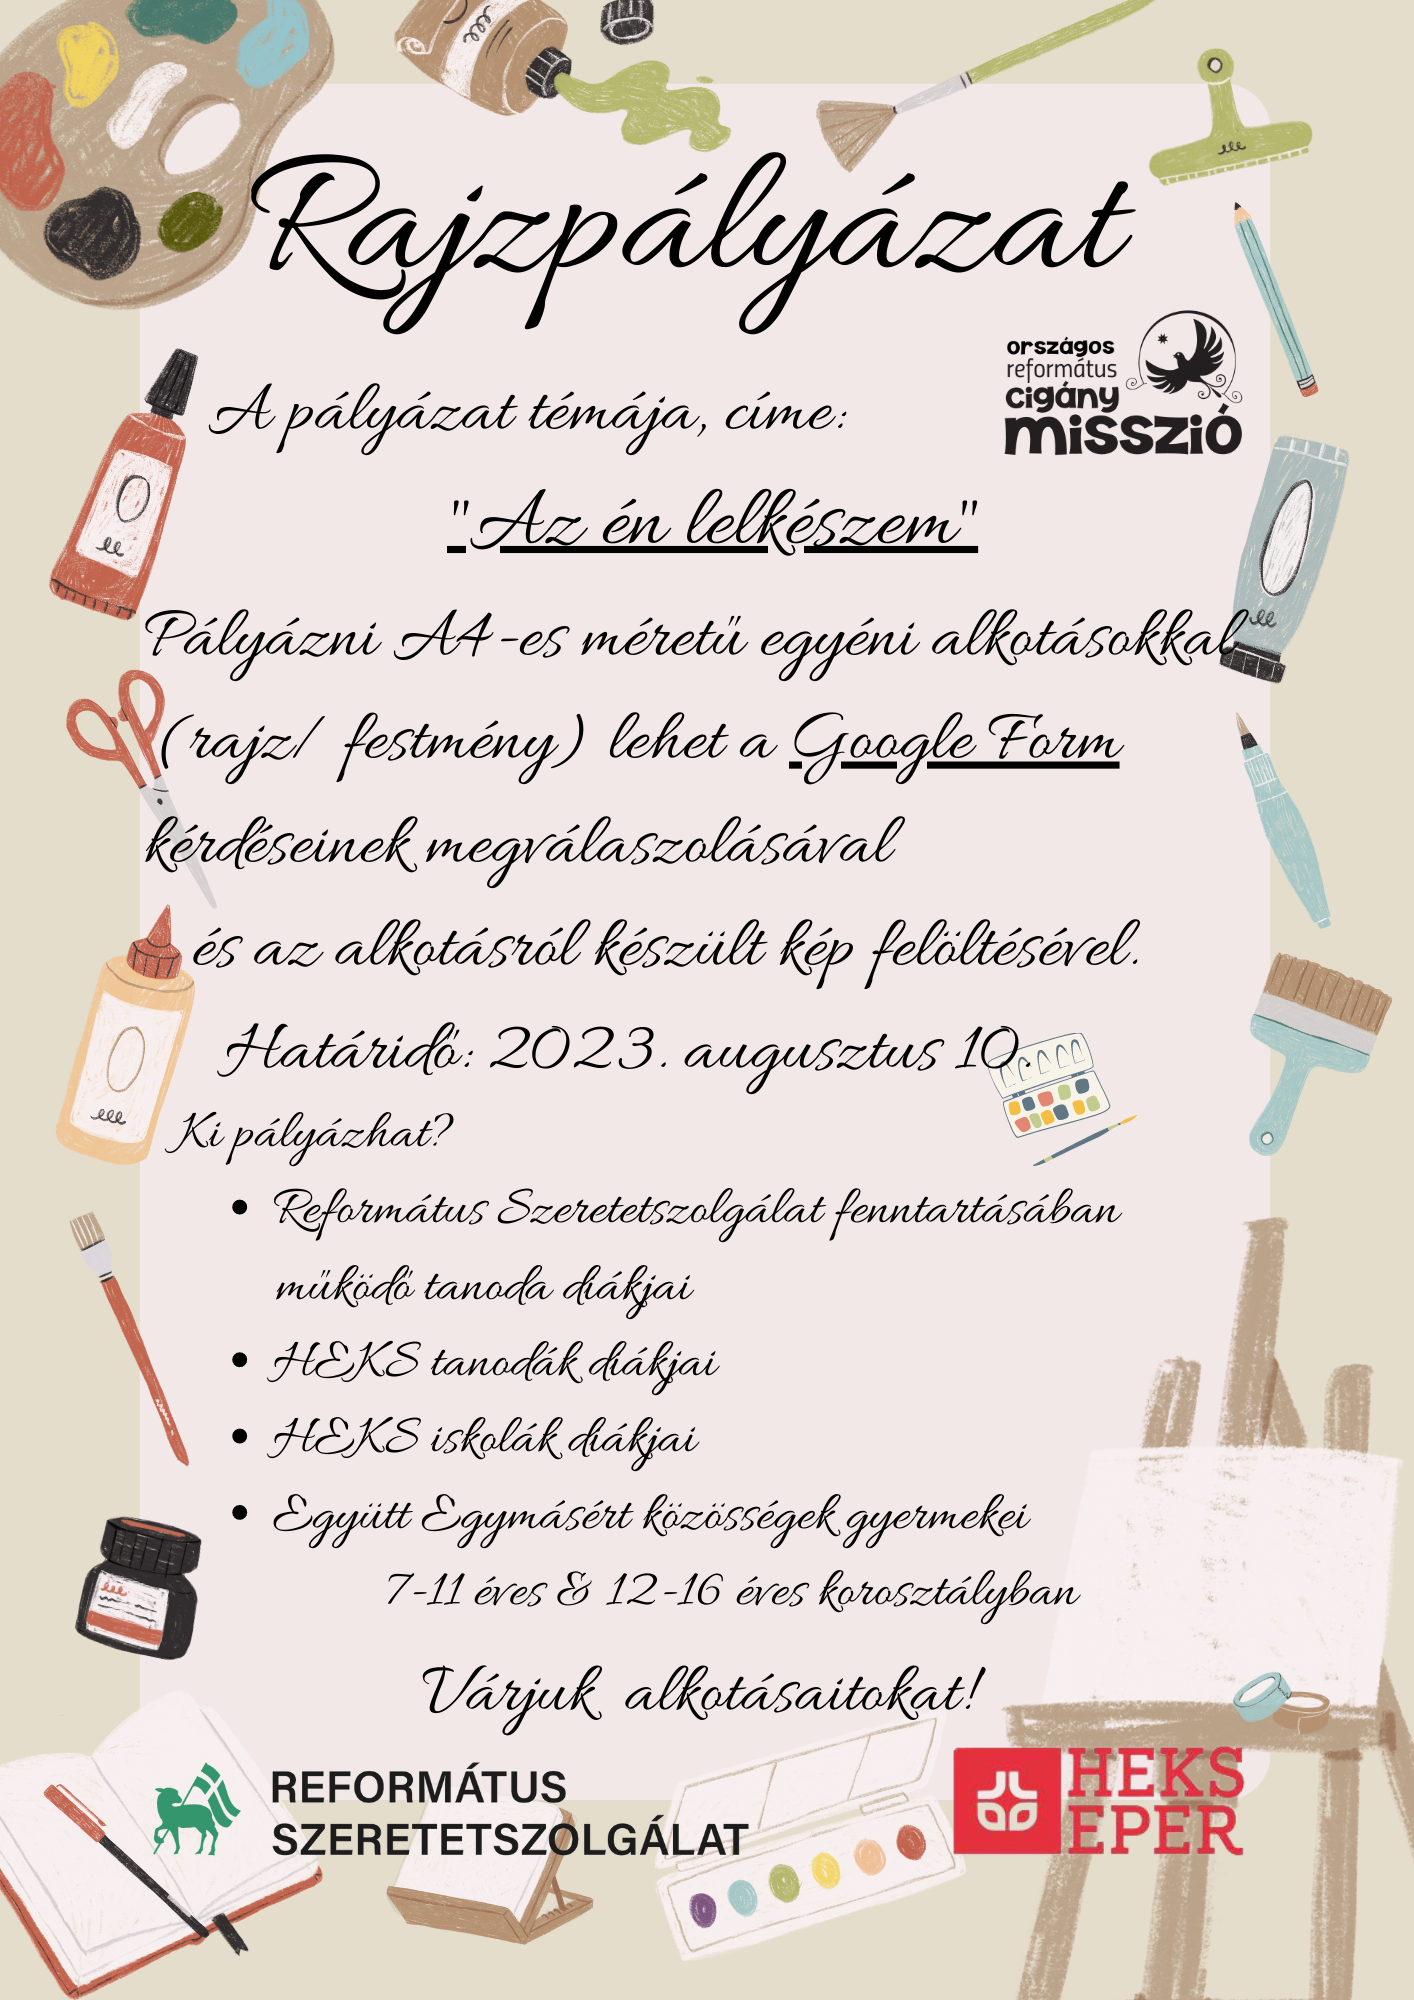 Rajzpályázat
országos
református
cigány
misszió
A pályázat témája, címe:
"Az én lelkészem"
Pályázni A4-es méretű egyéni alkotásokkal
(rajz/ festmény) lehet a Google Form
kérdéseinek megválaszolásával
és az alkotásról készült kép felöltésével.
Határidő: 2023. augusztus 10.
Ki pályázhat?
• Református Szeretetszolgálat fenntartásában
működő tanoda diákjai
• HEKS tanodák diákjai
• HEKS iskolák diákjai
• Együtt Egymásért közösségek gyermekei
7-11 éves & 12-16 éves korosztályban
Várjuk alkotásaitokat!
REFORMÁTUS
SZERETETSZOLGÁLAT
HEKS
EPER